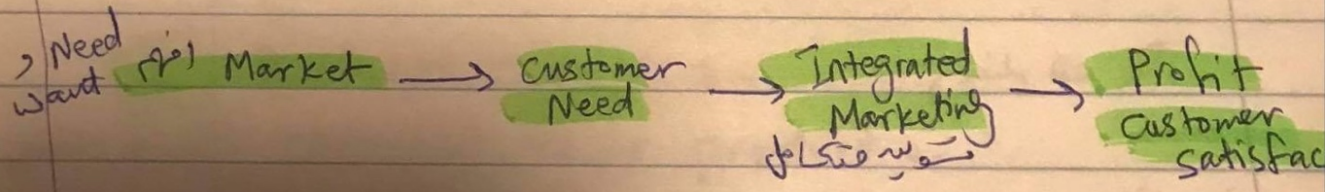 Need
و want
افهم Market → Customer Need → Integrated Marketing → Profit
تسويق متكامل
Customer satisfac